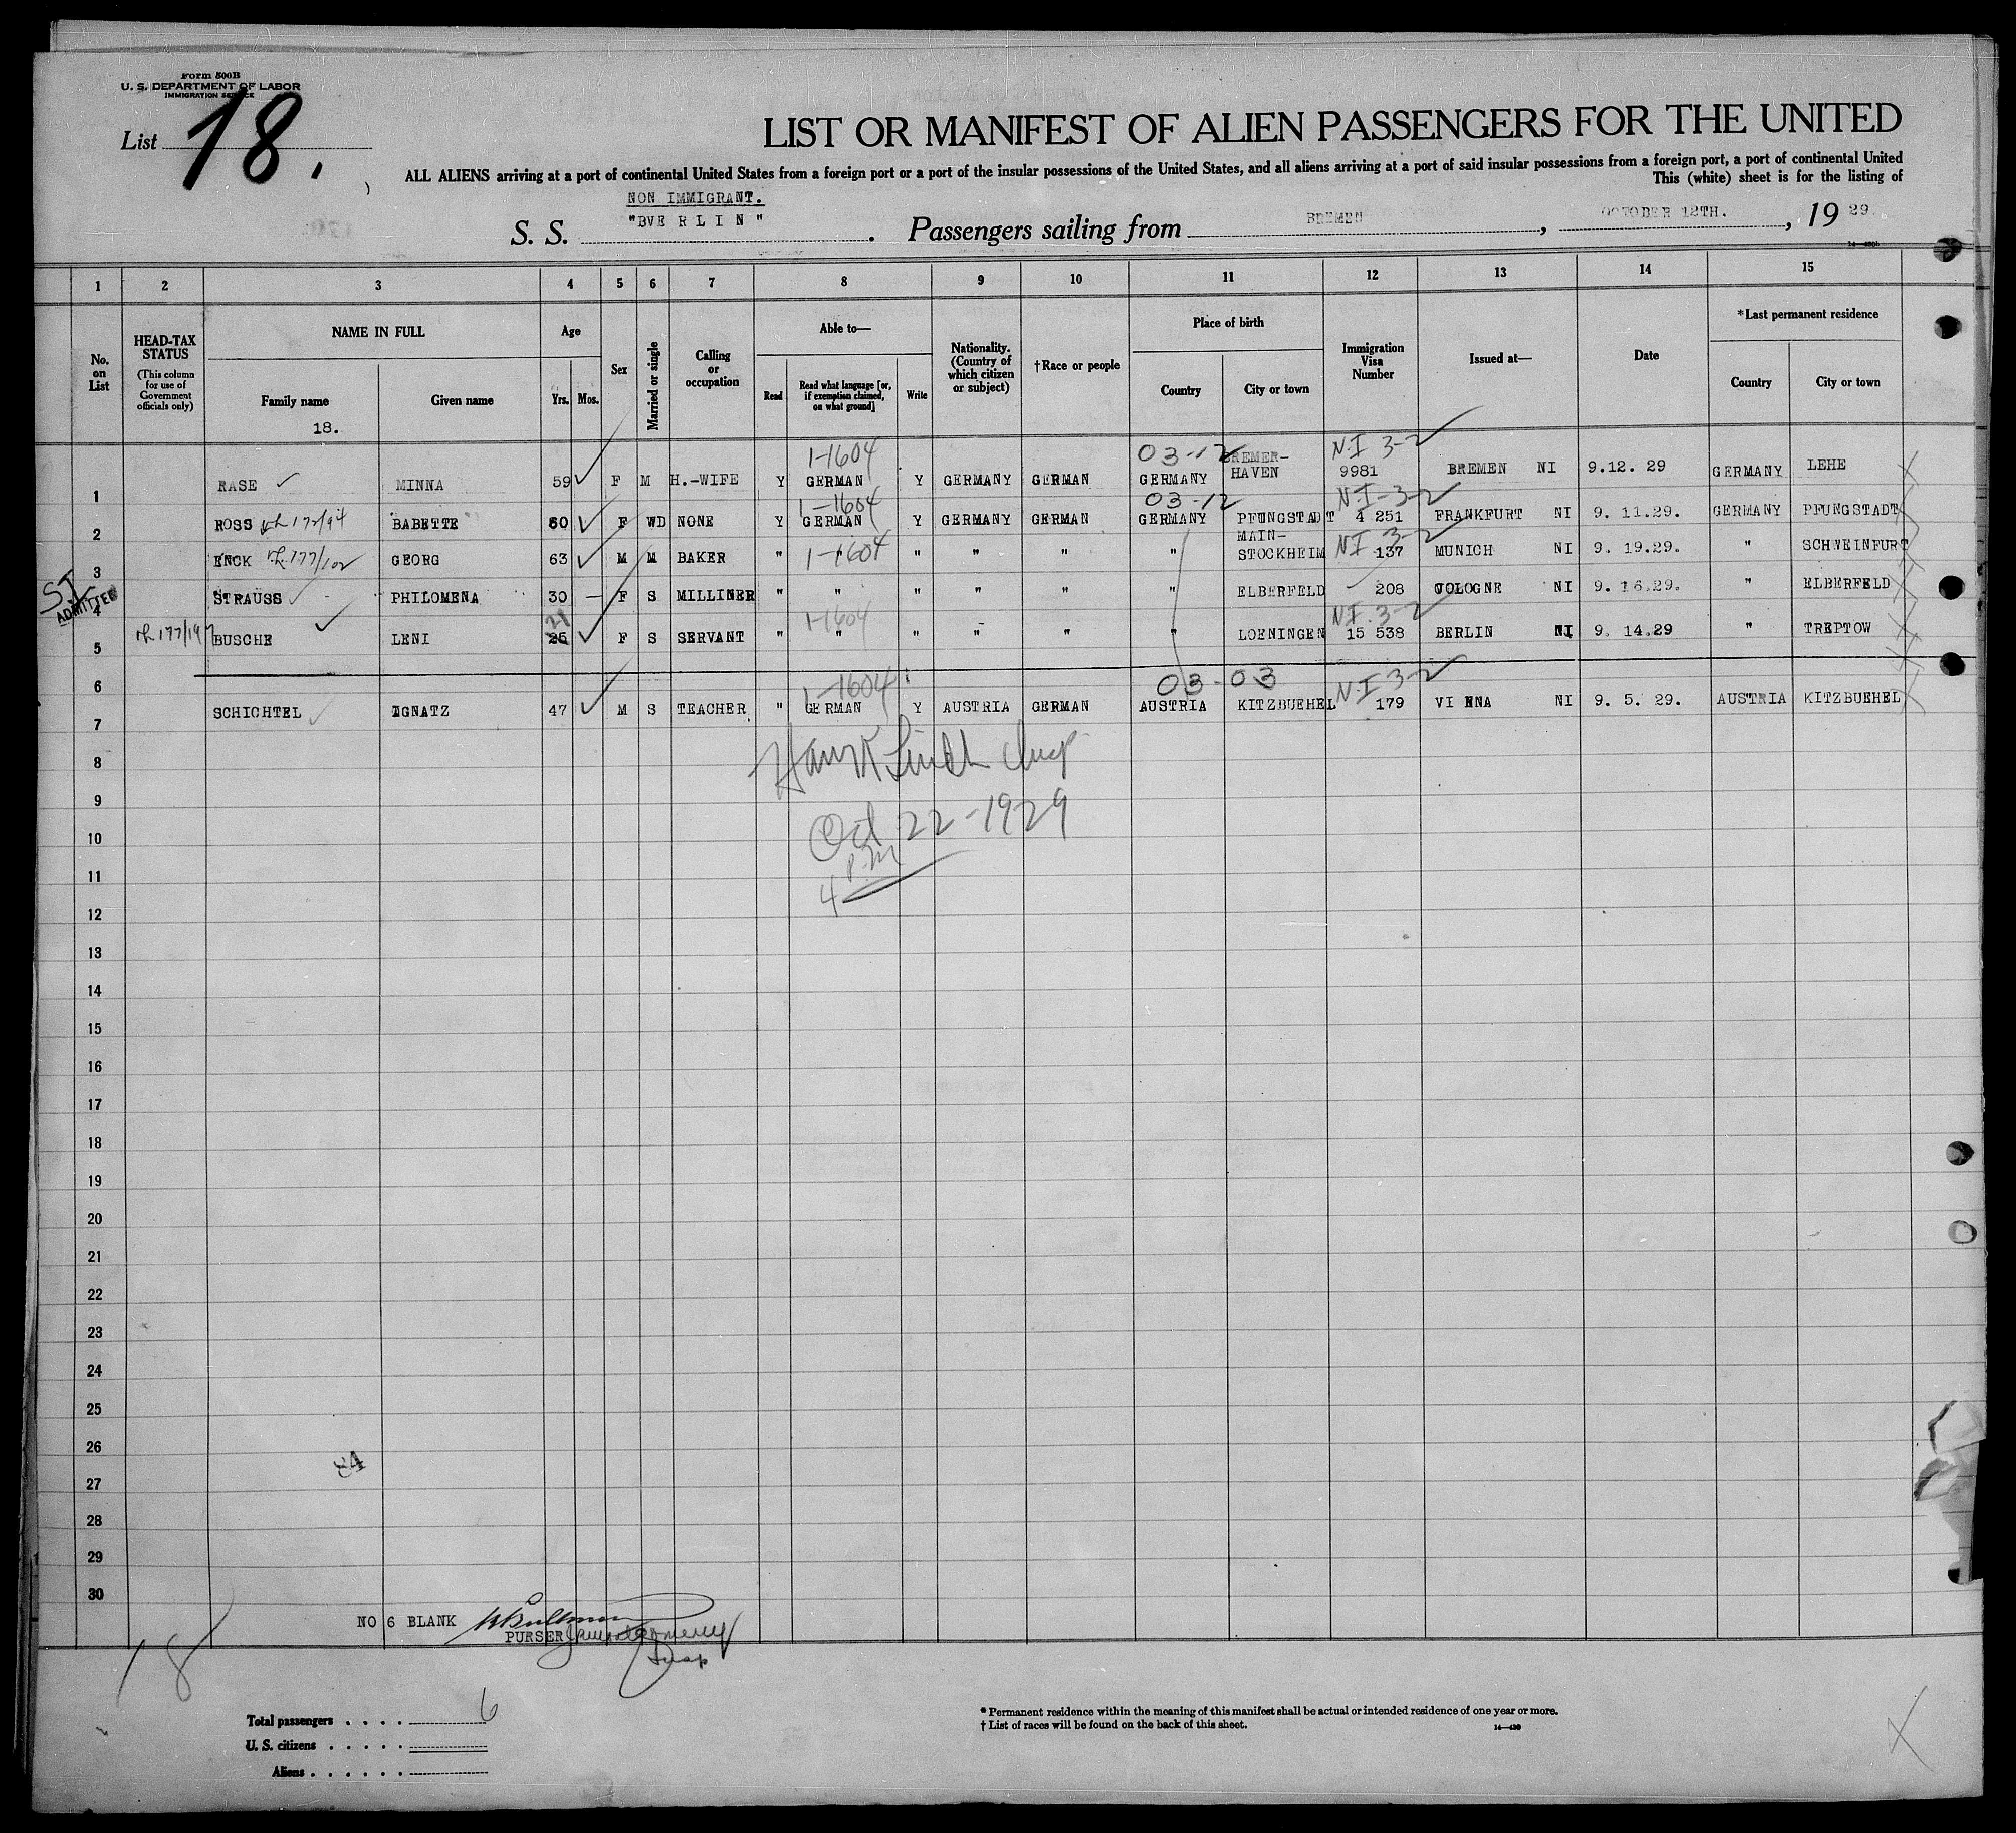 Form 500B
U. S. DEPARTMENT OF LABOR
IMMIGRATION SERVICE
List 18.
LIST OR MANIFEST OF ALIEN PASSENGERS FOR THE UNITED
ALL ALIENS arriving at a port of continental United States from a foreign port or a port of the insular possessions of the United States, and all aliens arriving at a port of said insular possessions from a foreign port, a port of continental United
This (white) sheet is for the listing of
NON IMMIGRANT.
S. S. "BVE R L I N". Passengers sailing from BREMEN, OCTOBER 12TH., 19 29.
1 2 3 4 5 6 7 8 9 10 11 12 13 14 15
No. on List
HEAD-TAX STATUS
(This column for use of Government officials only)
NAME IN FULL
Family name
18.
Given name
Age
Yrs. Mos.
Sex
Married or single
Calling or occupation
Able to—
Read
Read what language [or, if exemption claimed, on what ground]
Write
Nationality. (Country of which citizen or subject)
†Race or people
Place of birth
Country
City or town
Immigration Visa Number
Issued at—
Date
*Last permanent residence
Country
City or town
1-1604 03-12 N.I 3-2
1 RASE MINNA 59 F M H.-WIFE Y GERMAN Y GERMANY GERMAN GERMANY BREMER-HAVEN 9981 BREMEN NI 9.12. 29 GERMANY LEHE
1-1604 03-12 N.I-3-2
2 ROSS 172/94 BABETTE 60 F WD NONE Y GERMAN Y GERMANY GERMAN GERMANY PFUNGSTADT 4 251 FRANKFURT NI 9. 11.29. GERMANY PFUNGSTADT
3 ENCK 177/102 GEORG 63 M M BAKER " 1-1604 " " " " MAIN-STOCKHEIM NI 3-2 137 MUNICH NI 9. 19.29. " SCHWEINFURT
SI ADMITTED
4 STRAUSS PHILOMENA 30 F S MILLINER " " " " " " ELBERFELD 208 COLOGNE NI 9. 16.29. " ELBERFELD
1-1604 NI.3-2
5 177/197 BUSCHE LENI 25 21 F S SERVANT " " " " " " LOENINGEN 15 538 BERLIN NI 9. 14.29 " TREPTOW
6
1-1604 03-03 N.I 3-2
7 SCHICHTEL IGNATZ 47 M S TEACHER " GERMAN Y AUSTRIA GERMAN AUSTRIA KITZBUEHEL 179 VI ENNA NI 9. 5. 29. AUSTRIA KITZBUEHEL
8
9
Oct 22-1929
10
11
4 PM
12
13
14
15
16
17
18
19
20
21
22
23
24
25
26
84
27
28
29
30
NO 6 BLANK
PURSER
Insp
18
Total passengers . . . . 6
U. S. citizens . . . . .
Aliens . . . . . .
* Permanent residence within the meaning of this manifest shall be actual or intended residence of one year or more.
† List of races will be found on the back of this sheet.
14—430